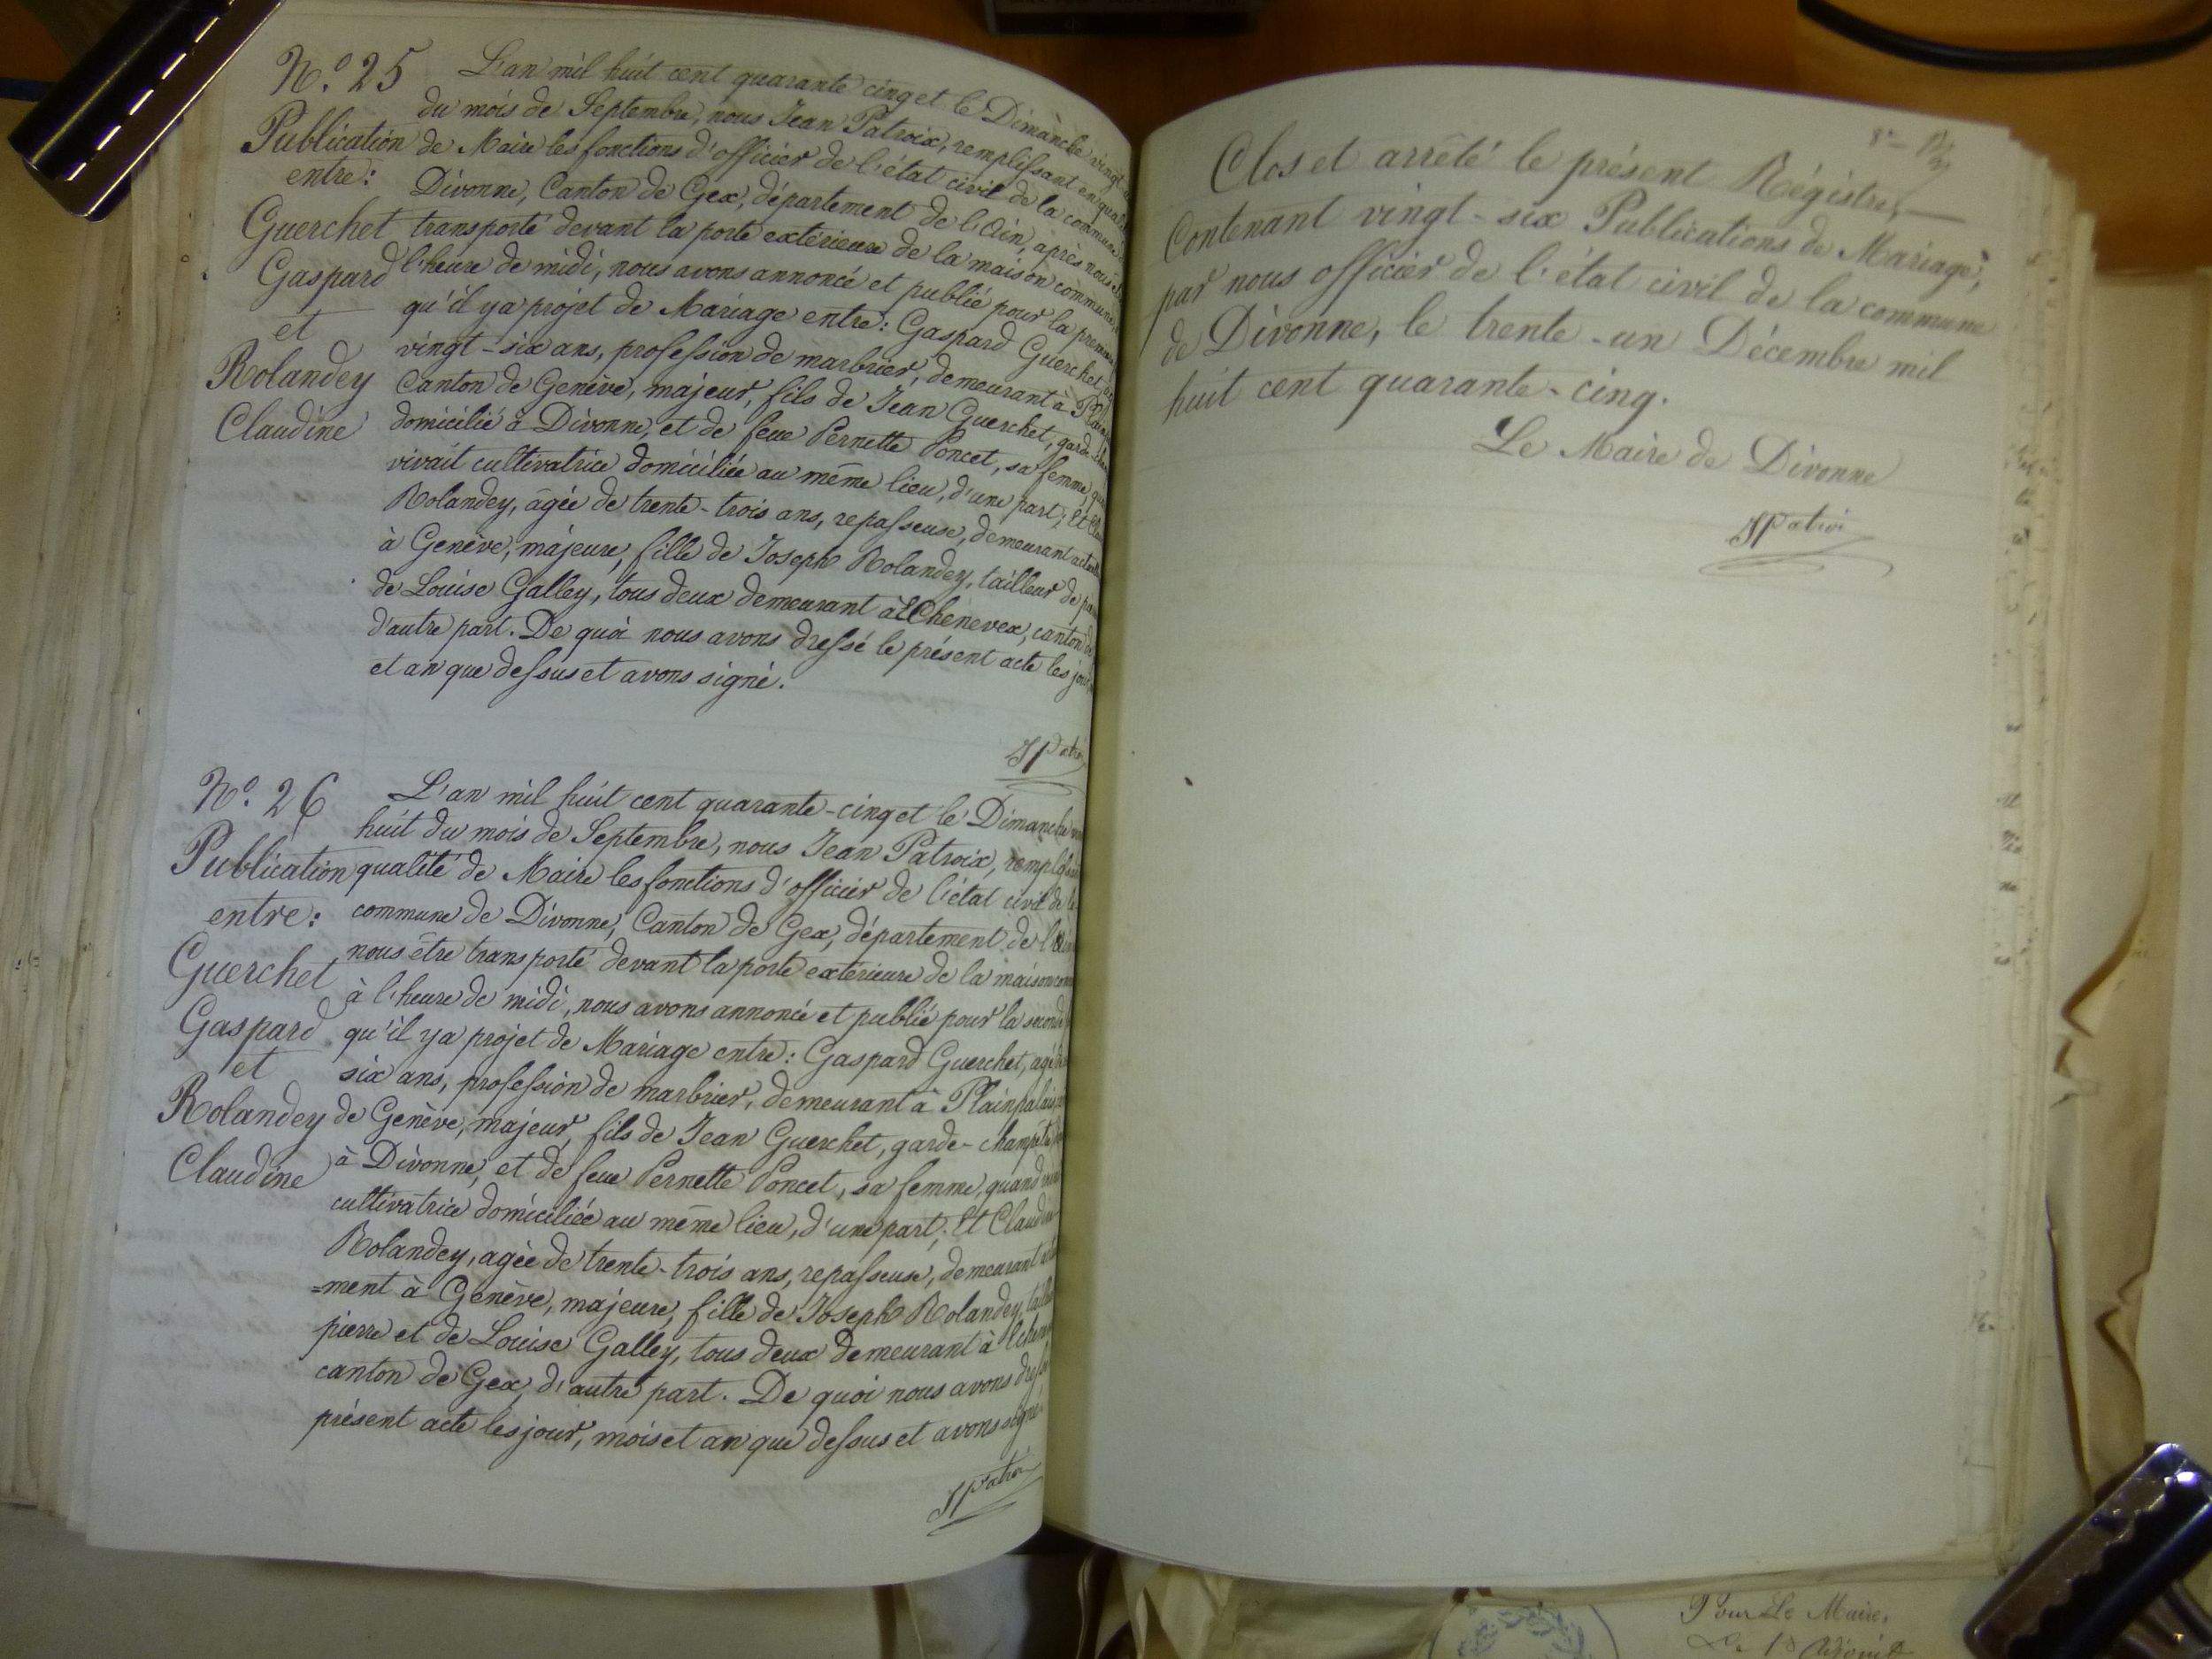 N.° 25
Publication
entre:
Guerchet
Gaspard
et
Rolandey
Claudine
L'an mil huit cent quarante cinq et le Dimanche vingt
du mois de Septembre, nous Jean Patroix, remplissant en
de Maire les fonctions d'officier de l'état civil de la commune
Divonne, Canton de Gex, département de l'Ain, après nous
transporté devant la porte extérieure de la maison commune,
l'heure de midi, nous avons annoncé et publié pour la
qu'il y a projet de Mariage entre: Gaspard Guerchet,
vingt-six ans, profession de marbrier, demeurant à
Canton de Genève, majeur, fils de Jean Guerchet, garde
domicilié à Divonne, et de feue Pernette Poncet, sa femme,
vivait cultivatrice domiciliée au même lieu, d'une part; Et
Rolandey, âgée de trente-trois ans, repasseuse, demeurant
à Genève, majeure, fille de Joseph Rolandey, tailleur de
de Louise Galley, tous deux demeurant à Echenevex, canton de
d'autre part. De quoi nous avons dressé le présent acte les
et an que dessus et avons signé.
JPatroi
N.° 26
Publication
entre:
Guerchet
Gaspard
et
Rolandey
Claudine
L'an mil huit cent quarante-cinq et le Dimanche
huit du mois de Septembre, nous Jean Patroix,
qualité de Maire les fonctions d'officier de l'état civil de la
commune de Divonne, Canton de Gex, département de l'Ain
nous être transporté devant la porte extérieure de la maison
à l'heure de midi, nous avons annoncé et publié pour la seconde
qu'il y a projet de Mariage entre: Gaspard Guerchet, agé
six ans, profession de marbrier, demeurant à Plainpalais,
de Genève, majeur, fils de Jean Guerchet, garde-champêtre
à Divonne, et de feue Pernette Poncet, sa femme, quand
cultivatrice domiciliée au même lieu, d'une part; Et Claudine
Rolandey, agée de trente-trois ans, repasseuse, demeurant
=ment à Genève, majeure, fille de Joseph Rolandey,
pierre et de Louise Galley, tous deux demeurant à
canton de Gex, d'autre part. De quoi nous avons
présent acte les jour, mois et an que dessus et avons signé.
JPatroi
Clos et arrêté le présent Régistre,
Contenant vingt-six Publications de Mariage,
par nous officier de l'état civil de la commune
de Divonne, le trente-un Décembre mil
huit cent quarante-cinq.
Le Maire de Divonne
JPatroi
Pour Le Maire,